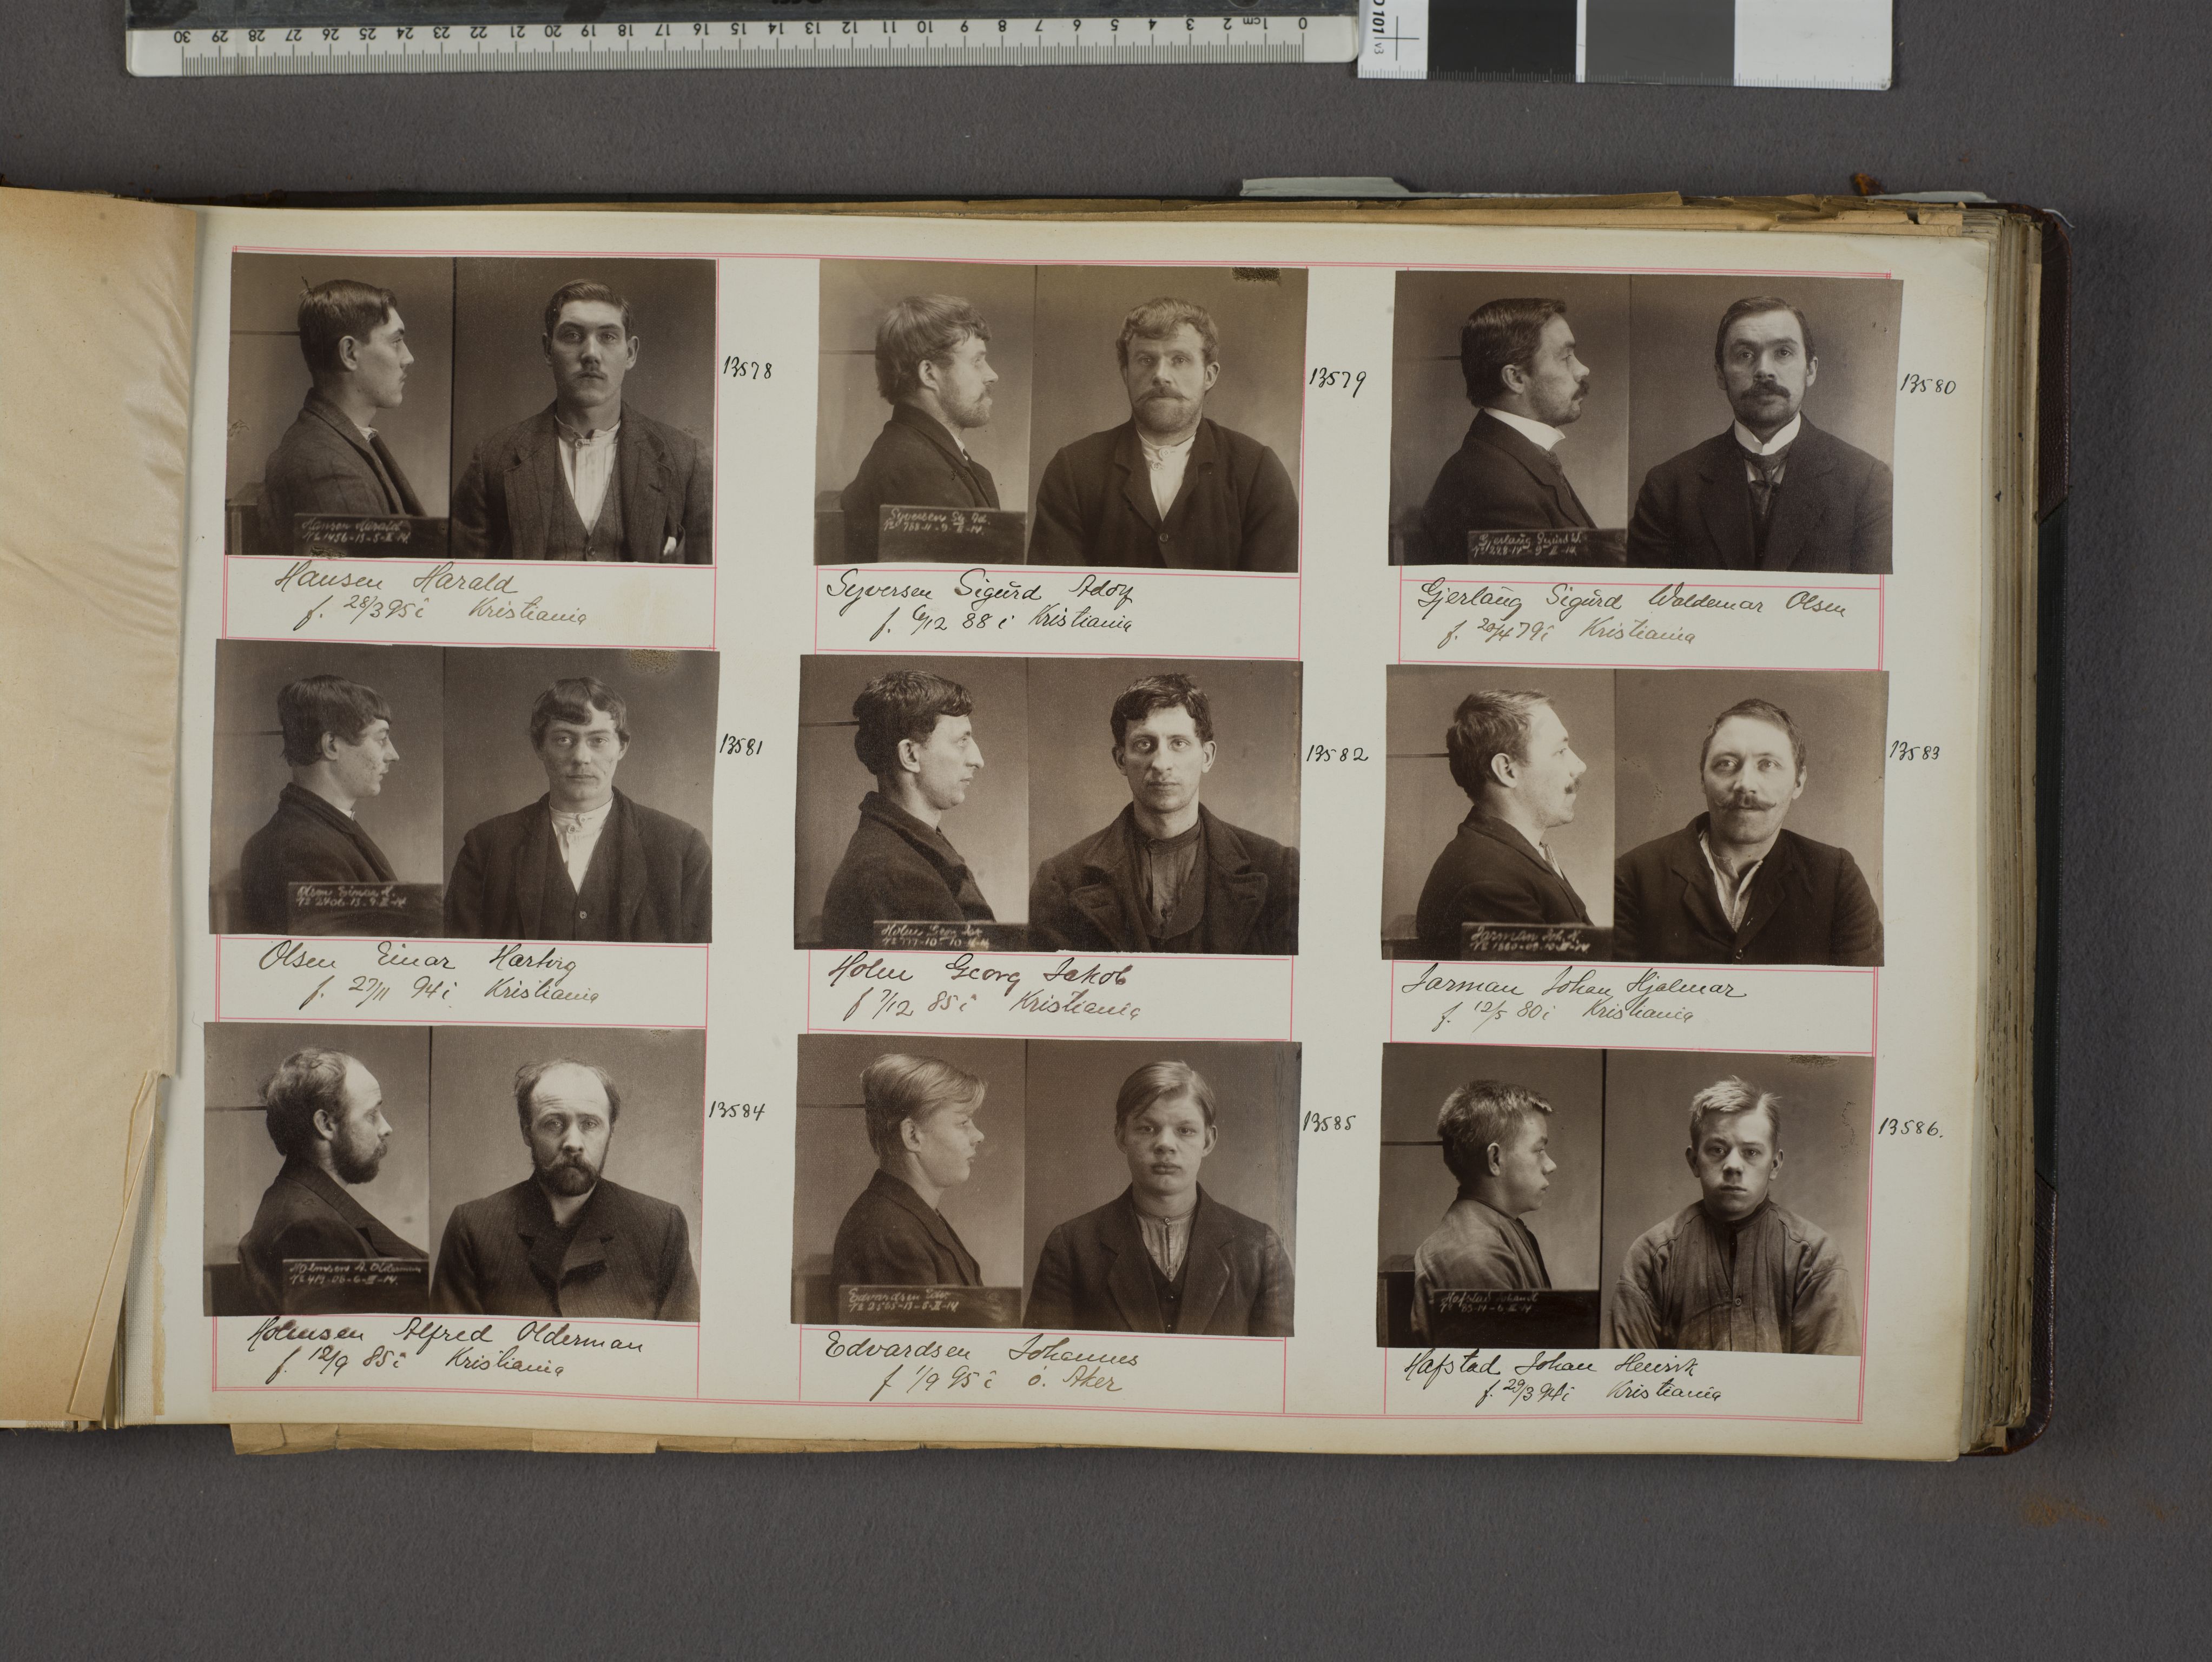 0 1cm 2 3 4 5 6 7 8 9 10 11 12 13 14 15 16 17 18 19 20 21 22 23 24 25 26 27 28 29 30
Hansen Harald
13578
Hansen Harald
f. 28/3 95 i Kristiania
13579
Syversen Sigŭrd Adolf
f. 6/12 88 i Kristiania
13580
Gjerlaŭg Sigŭrd Waldemar Olsen
f. 20/4 79 i Kristiania
Olsen Einar H.
13581
Olsen Einar Hartvig
f. 27/11 94 i Kristiania
13582
Holm Georg Jakob
f 7/12 85 i Kristiania
Jarman Joh. H.
13583
Jarman Johan Hjalmar
f. 12/5 80 i Kristiania
13584
Holmsen Alfred Olderman
f. 12/9 85 i Kristiania
13585
Edvardsen Johannes
f 1/9 95 i ö. Aker
13586.
Hafstad Johan Henrik
f. 29/3 94 i Kristiania